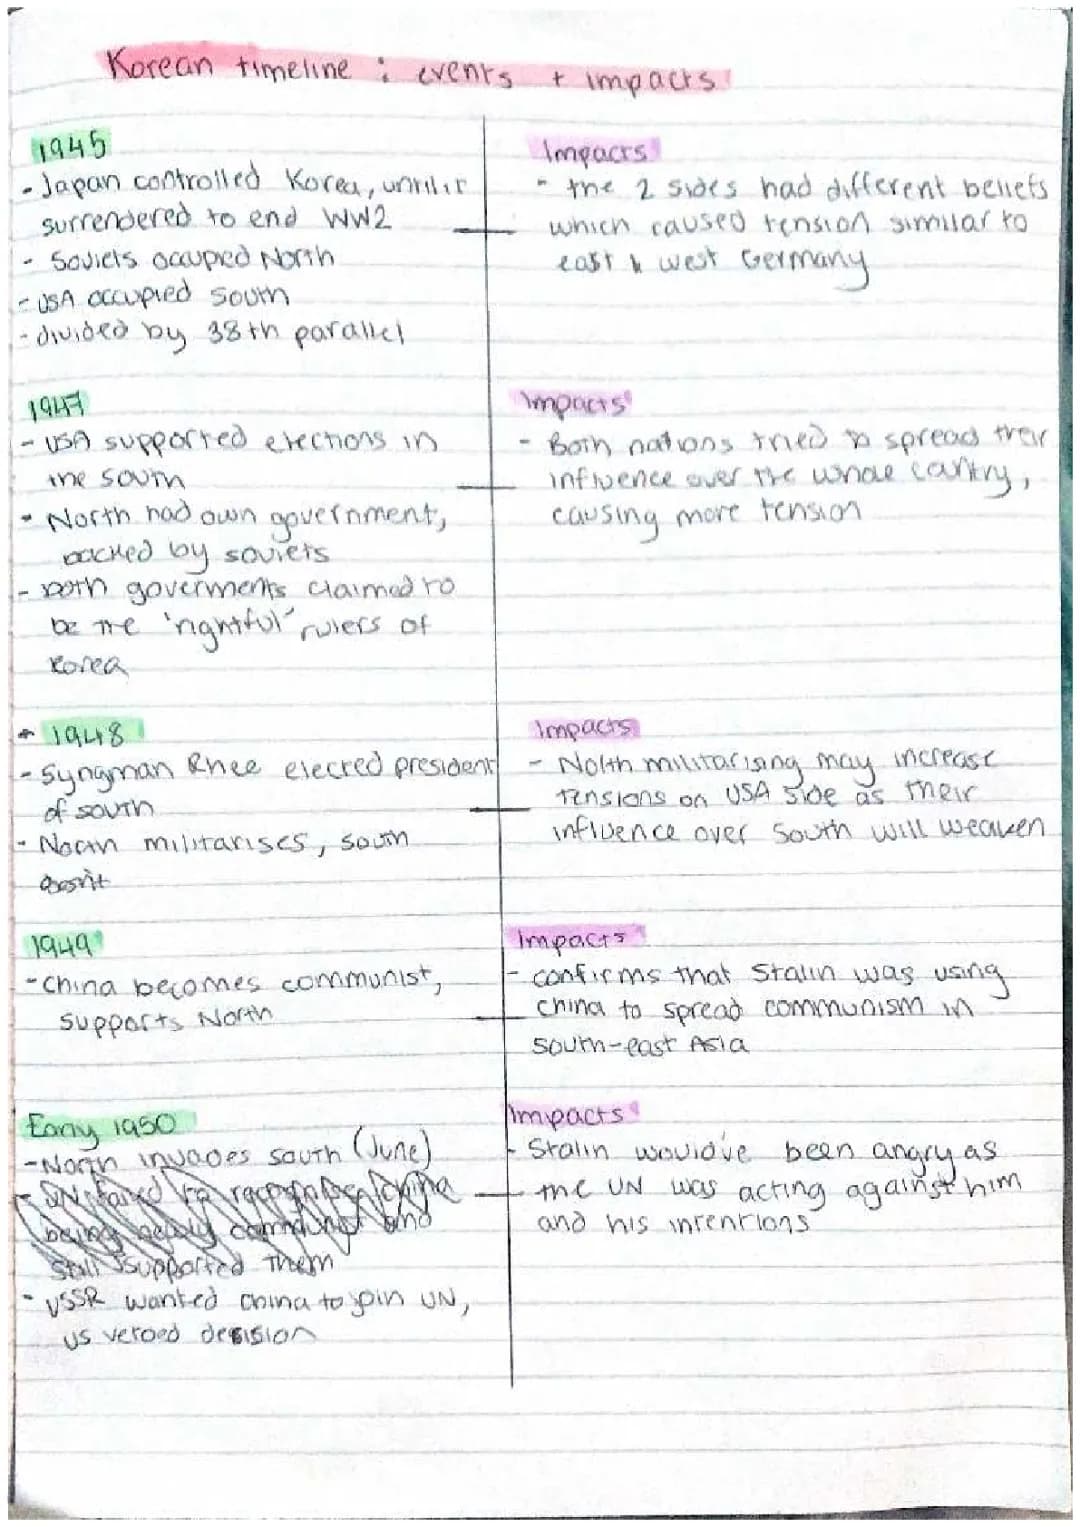 Korean timeline : events + impacts
1945
- Japan controlled Korea, until it
surrendered to end WW2
- Soviets occupied North
- USA occupied South
- divided by 38th parallel
Impacts
- the 2 sides had different beliefs
which caused tension similar to
east & west Germany
1947
- USA supported elections in
the south
- North had own government,
backed by soviets
- both goverments claimed to
be the 'rightful' rulers of
Korea
Impacts
- Both nations tried to spread their
influence over the whole cantry,
causing more tension
1948
- Syngman Rhee elected president
of south
- North militarises, south
doesn't
Impacts
- North militarising may increase
tensions on USA side as their
influence over South will weaken
1949
- China becomes communist,
supports North
Impacts
- confirms that Stalin was using
China to spread communism in
south-east Asia
Early 1950
- North invades south (June)
- UN failed to recognise China
being newly communist and
still supported them
- USSR wanted China to join UN,
US vetoed decision
Impacts
- Stalin would've been angry as
the UN was acting against him
and his intentions